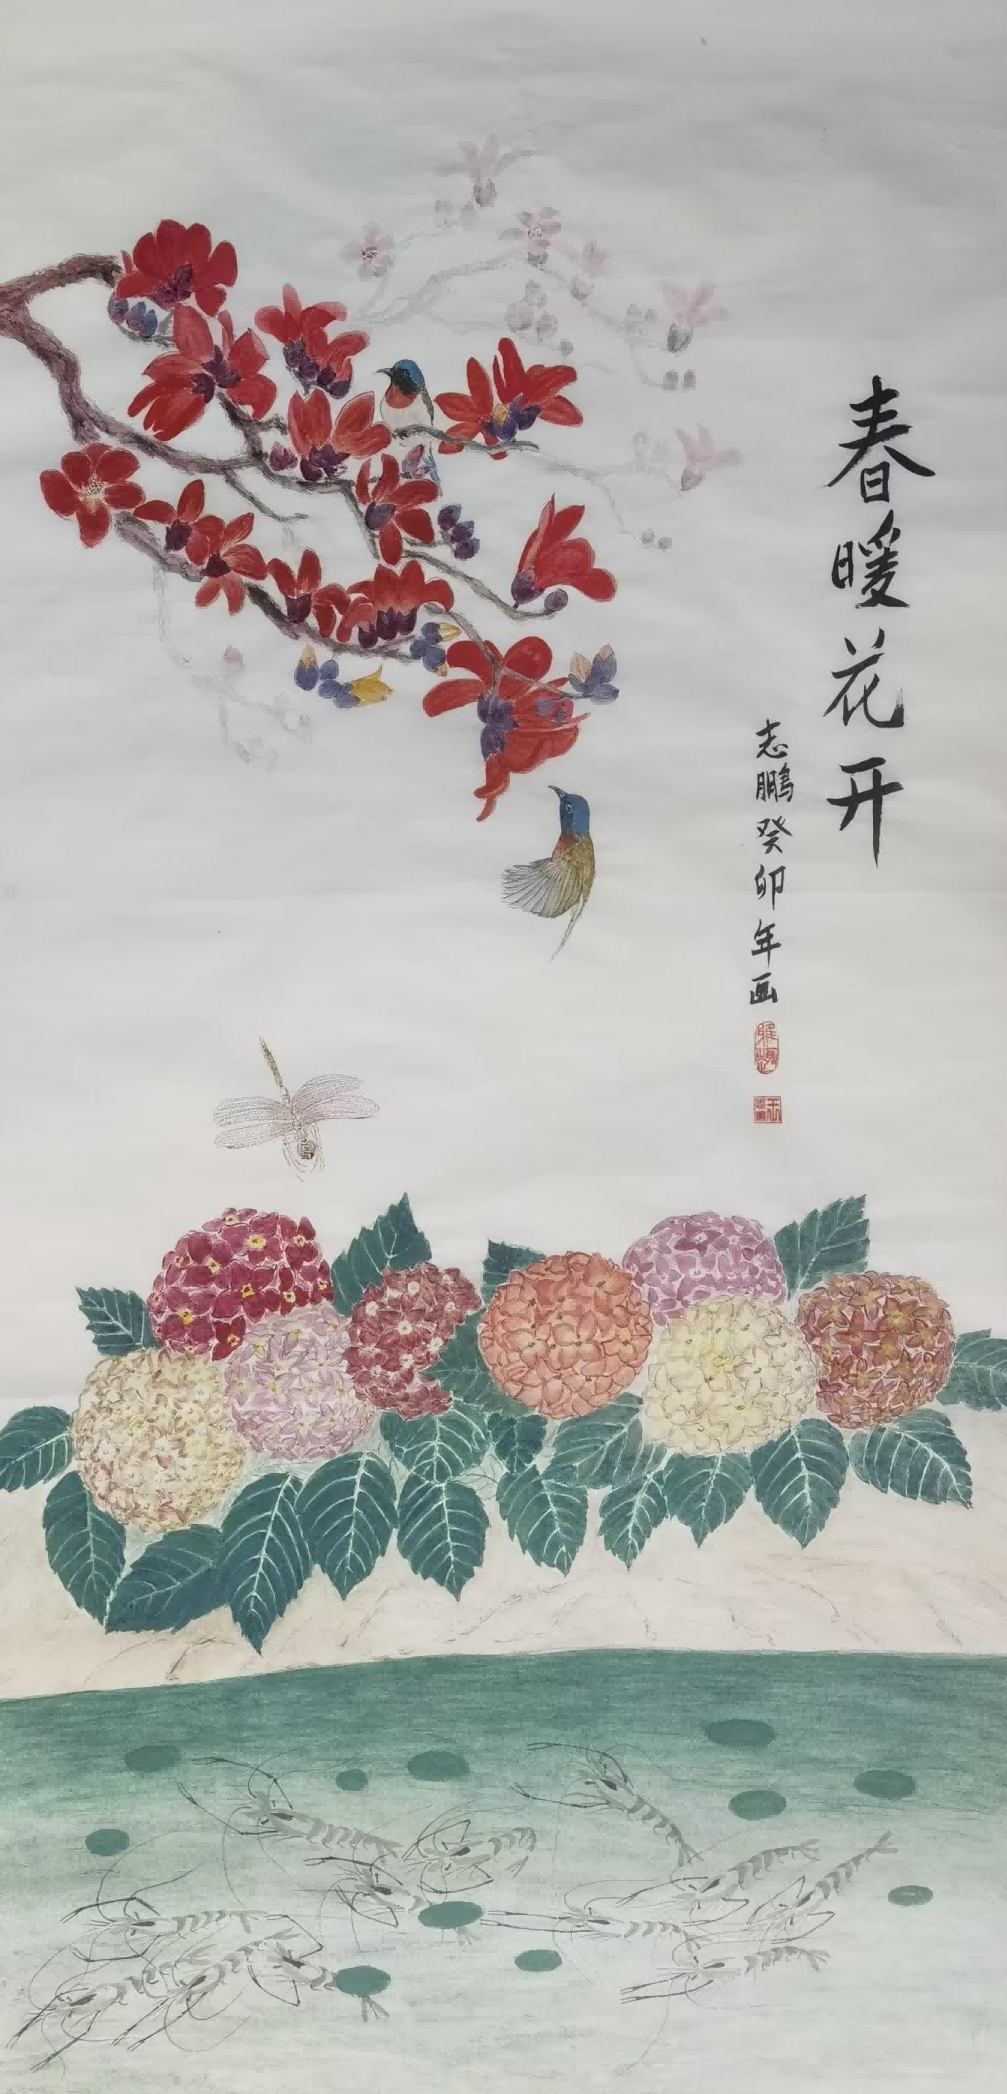 春暖花开
志鹏癸卯年画